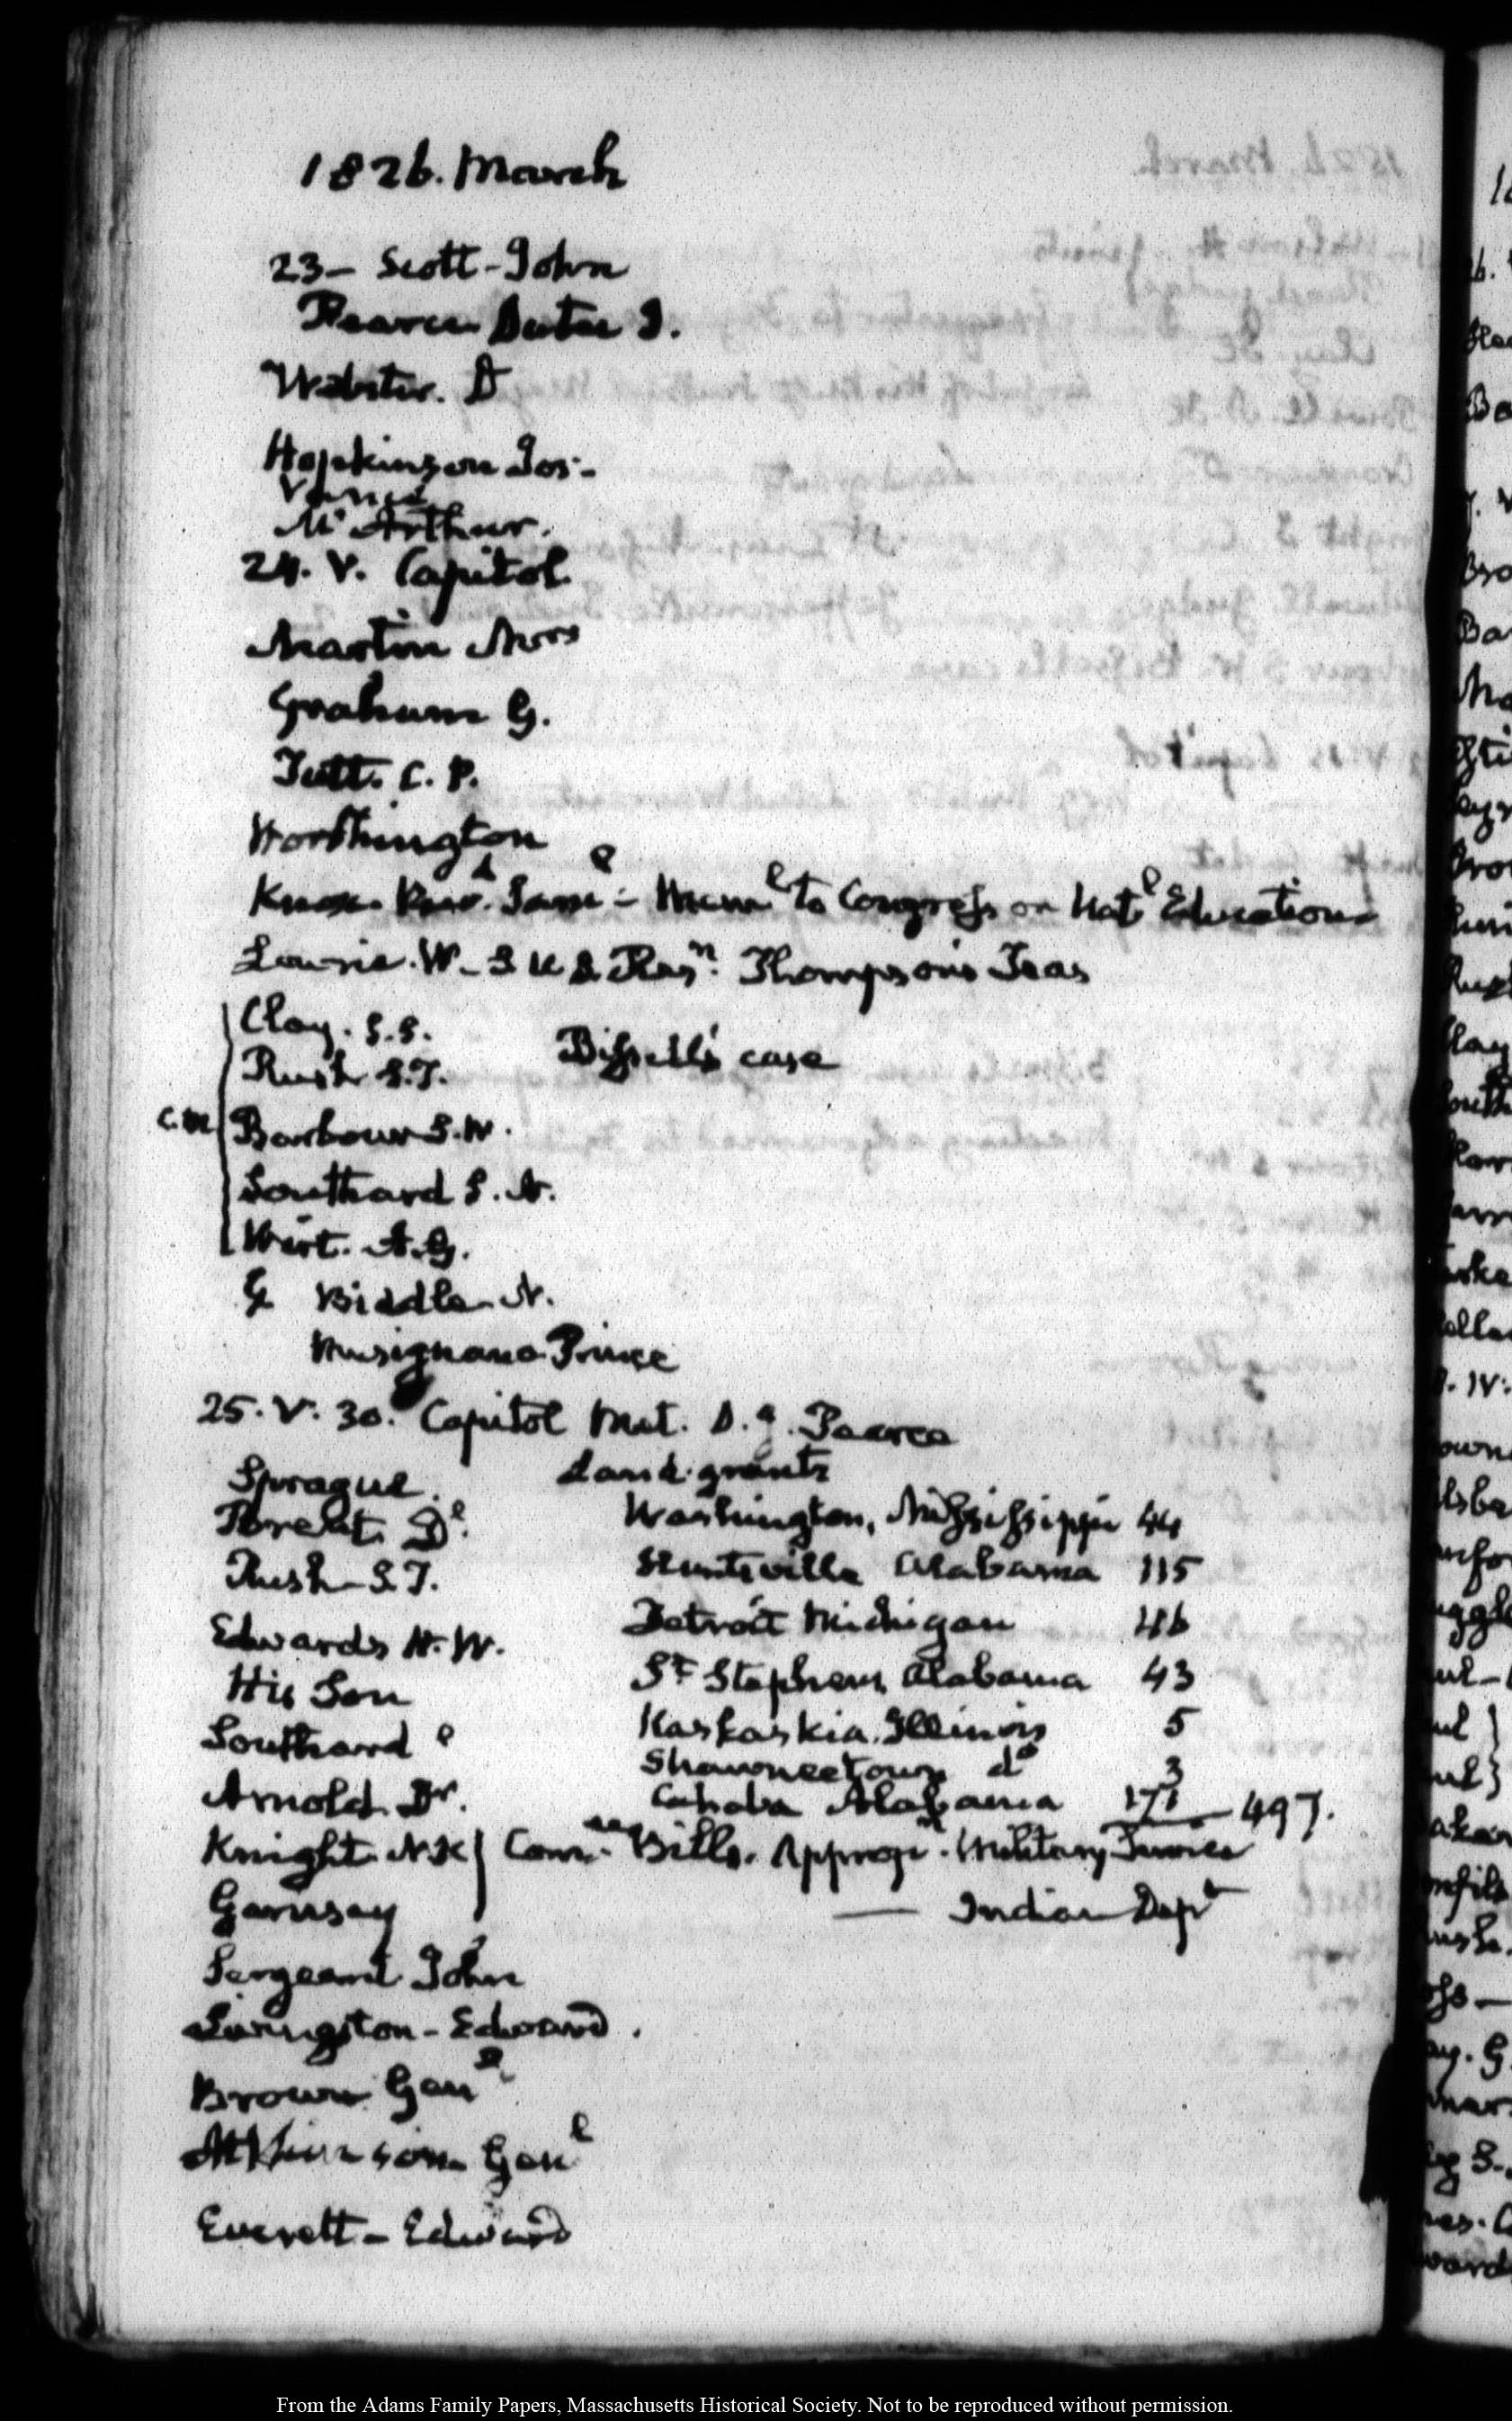 1826. March
23 - Scott - John
Pearce Dutee J.
Webster. D
Hopkinson Jos: -
Vance
Mc Arthur.
24. V. Capitol
Martin Mrs
Graham G.
Tutt. C. P.
Worthington
Knox. Revd. Saml - Meml to Congress on Natl Education
Lowrie. W - S U S. Thompson's Teas
Clay. S.S.
Bissell's case
Rush S.T.
C. M Barbour S.W.
Southard S. N.
Wirt. A.G.
Biddle. N.
Musignano Prince
25. V. 30. Capitol Met. D. J. Pearce
Sprague. Land grants
Washington, Mississippi 44
Rush - S T. Huntsville Alabama 115
Edwards H. W. Detroit Michigan 46
His Son St Stephens Alabama 43
Kaskaskia. Illinois 5
Southard
Shawneetown do 3
Arnold Dr. Cahaba Alabama 171 - 497.
Knight. N. R Bills. Appropr. Military Service
Garnsey — Indian Dept
Sergeant John
Livingston - Edward.
Brown Genl
Atkinson Genl
Everett - Edward
From the Adams Family Papers, Massachusetts Historical Society. Not to be reproduced without permission.